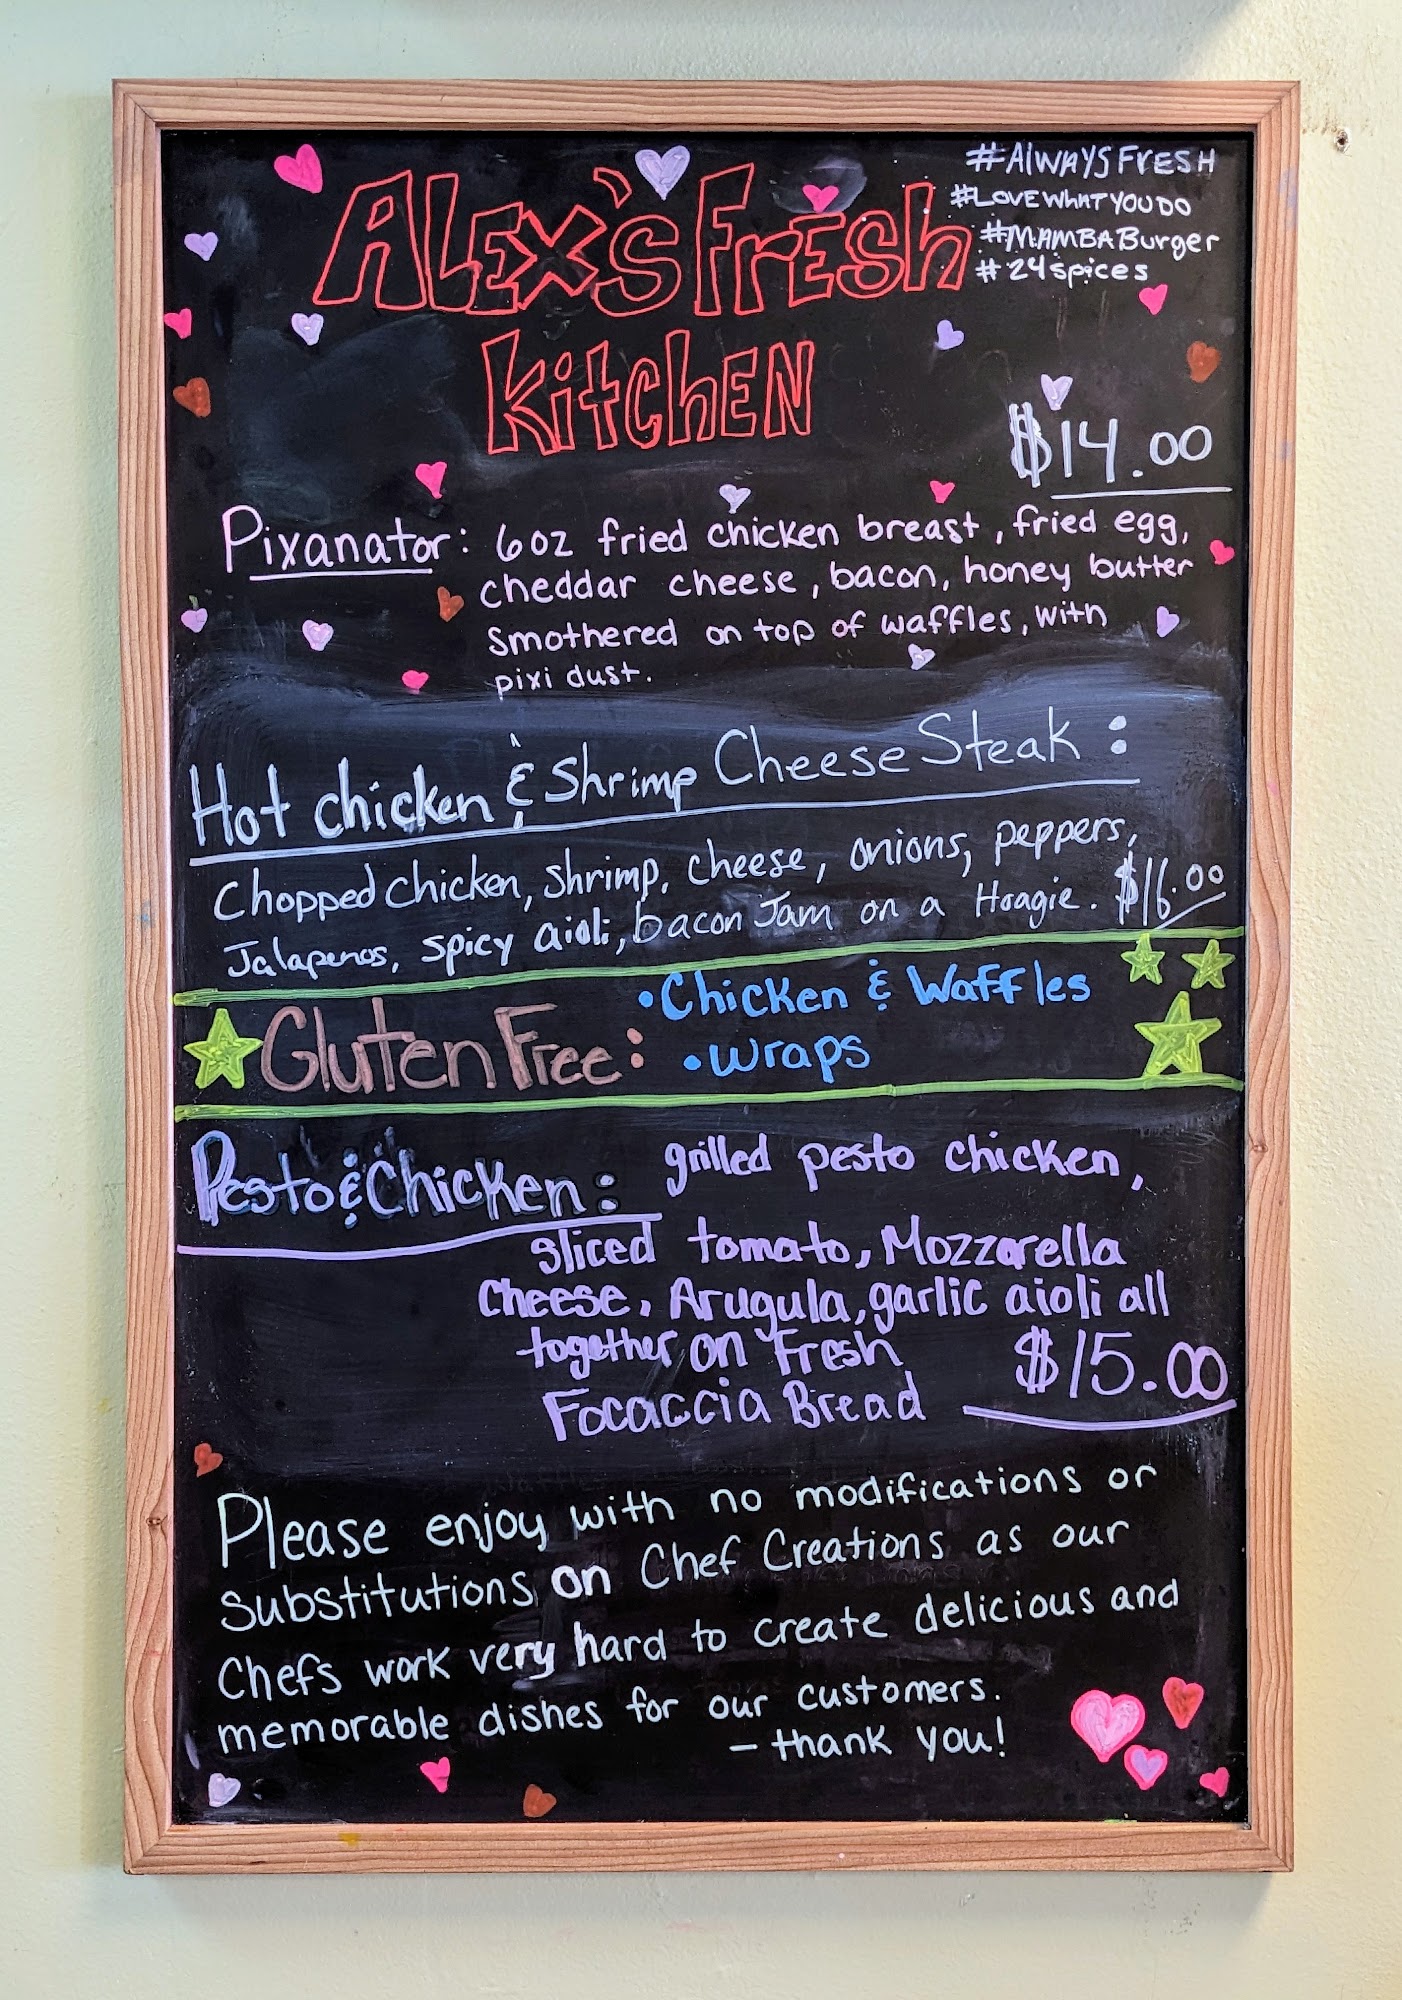 #AlWAYSFrESH
#LOVEWhATYOUDO
#MAMBABurger
#24spices
ALEX'S FrESh
KitChEN
$14.00
Pixanator: 6oz fried chicken breast, fried egg,
cheddar cheese, bacon, honey butter
smothered on top of waffles, with
pixi dust.
Hot chicken & Shrimp Cheese Steak:
Chopped chicken, shrimp, cheese, onions, peppers,
Jalapenos, spicy aioli, bacon Jam on a Hoagie. $16.00
Gluten Free: • Chicken & Waffles
• Wraps
Pesto & Chicken: grilled pesto chicken,
sliced tomato, Mozzarella
Cheese, Arugula, garlic aioli all
together on Fresh
Focaccia Bread $15.00
Please enjoy with no modifications or
substitutions on Chef Creations as our
Chefs work very hard to create delicious and
memorable dishes for our customers.
— thank you!